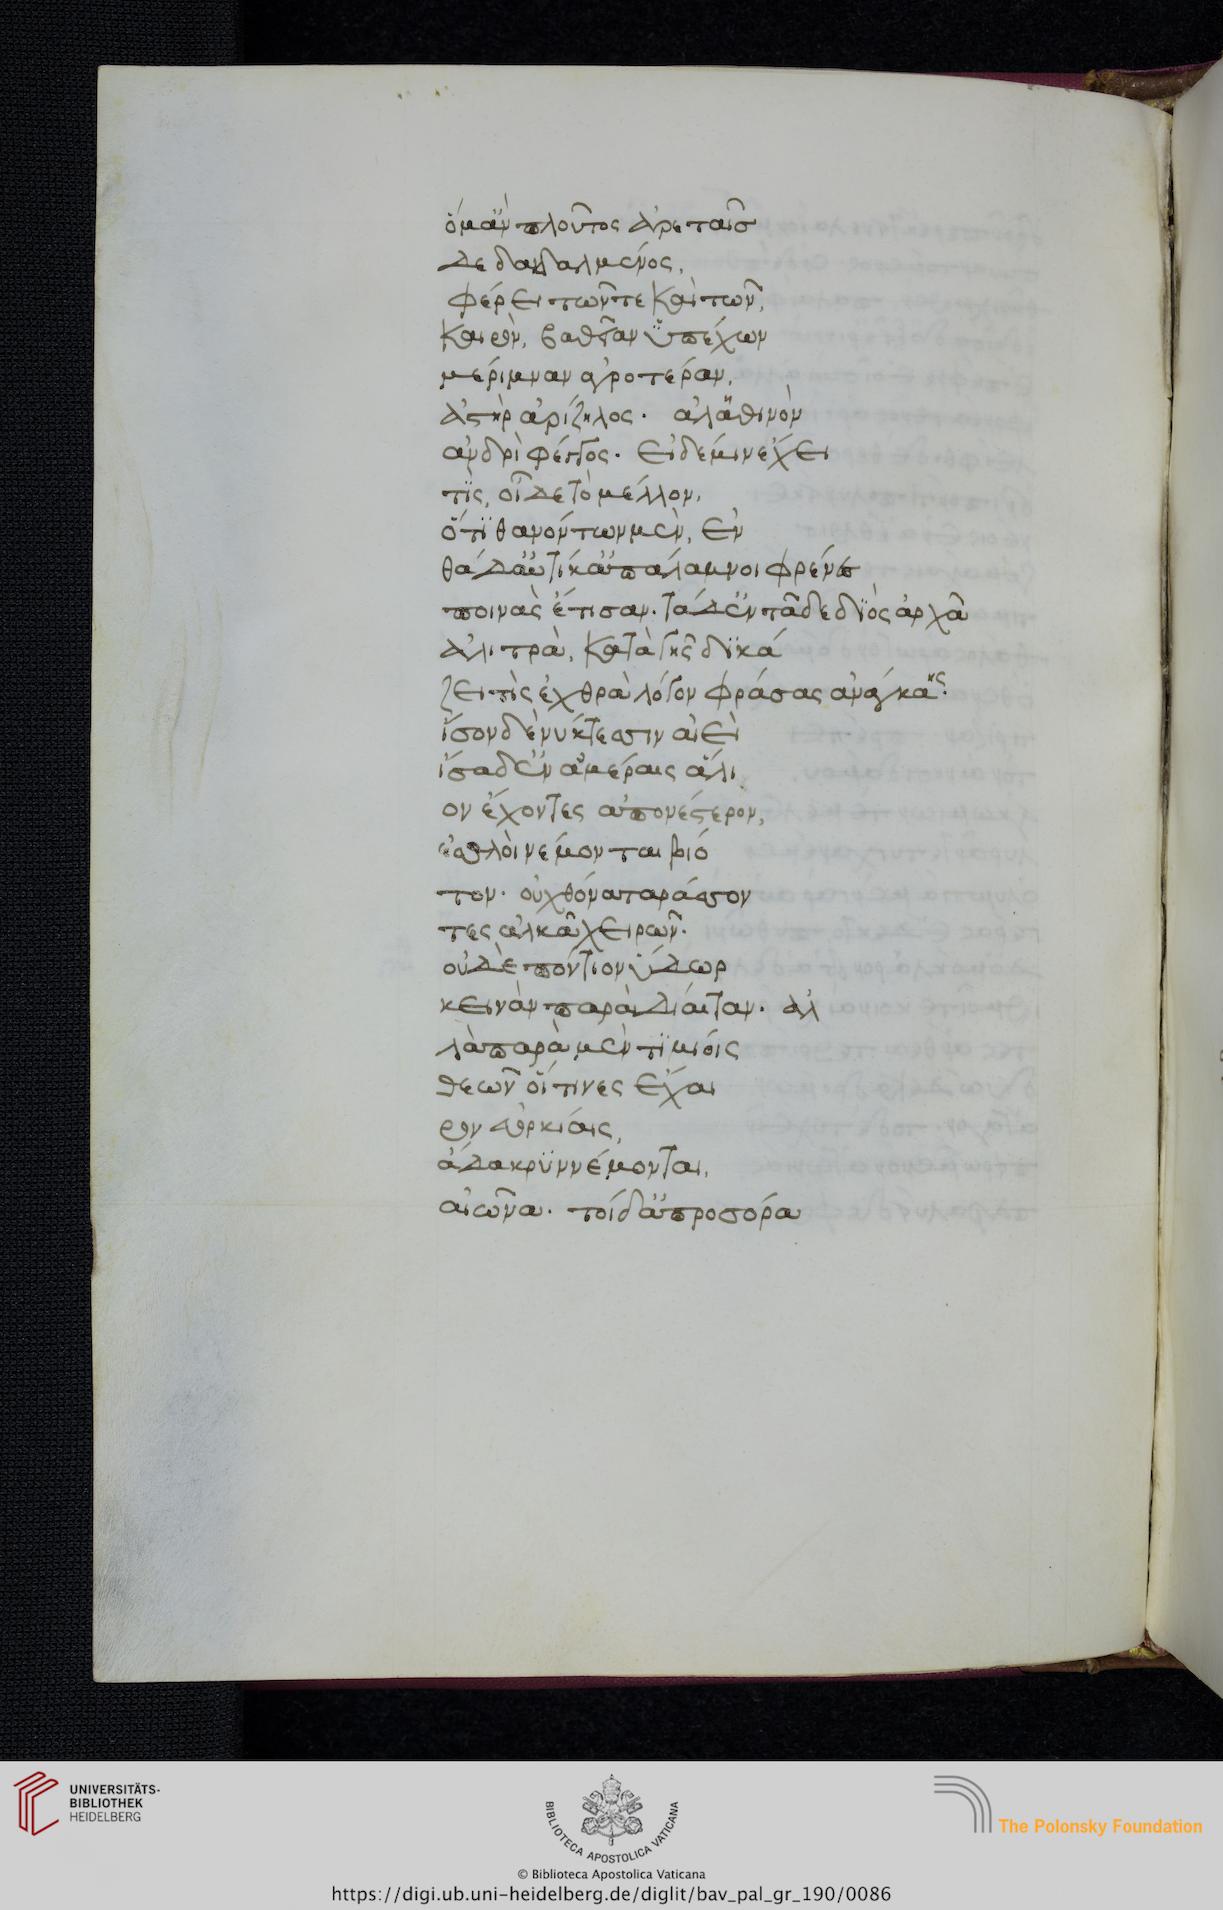 ὁ μὰν πλοῦτος ἀρεταῖσ
δεδαιδαλμένος,
φέρει τῶν τε καὶ τῶν,
καιρὸν, βαθεῖαν ὑπέχων
μέριμναν ἀγροτέραν,
ἀστὴρ ἀρίζηλος· ἀλάθινὸν
ἀνδρὶ φέγγος· εἰ δέ μιν ἔχει
τὶς, οἶδε τὸ μέλλον,
ὅτι θανόντων μὲν, ἐν
θάδ' αὐτίκ' ἀπάλαμνοι φρένες
ποινὰς ἔτισαν. τὰ δ' ἐν τᾶδε διὸς ἀρχᾶ
ἀλιτρὰ, κατὰ γῆς δικά
ζει τὶς ἐχθρᾶ λόγον φράσας ἀνάγκας·
ἴσον δὲ νύκτεσσιν αἰεὶ
ἴσα δ' ἐν ἁμέραις ἅλι
ον ἔχοντες ἀπονέστερον,
ἐσθλοὶ νέμονται βιό
τον· οὐ χθόνα ταράσσον
τες ἀλκᾶ χειρῶν·
οὐδὲ πόντιον ὕδωρ
κεινὰν παρὰ δίαιταν· ἀλ
λὰ παρὰ μὲν τιμίοις
θεῶν οἵτινες ἔχαι
ρον εὐορκίαις,
ἄδακρυν νέμονται,
αἰῶνα· τοὶ δ' ἀπροσόρα
UNIVERSITÄTS-
BIBLIOTHEK
HEIDELBERG
BIBLIOTECA APOSTOLICA VATICANA
The Polonsky Foundation
© Biblioteca Apostolica Vaticana
https://digi.ub.uni-heidelberg.de/diglit/bav_pal_gr_190/0086